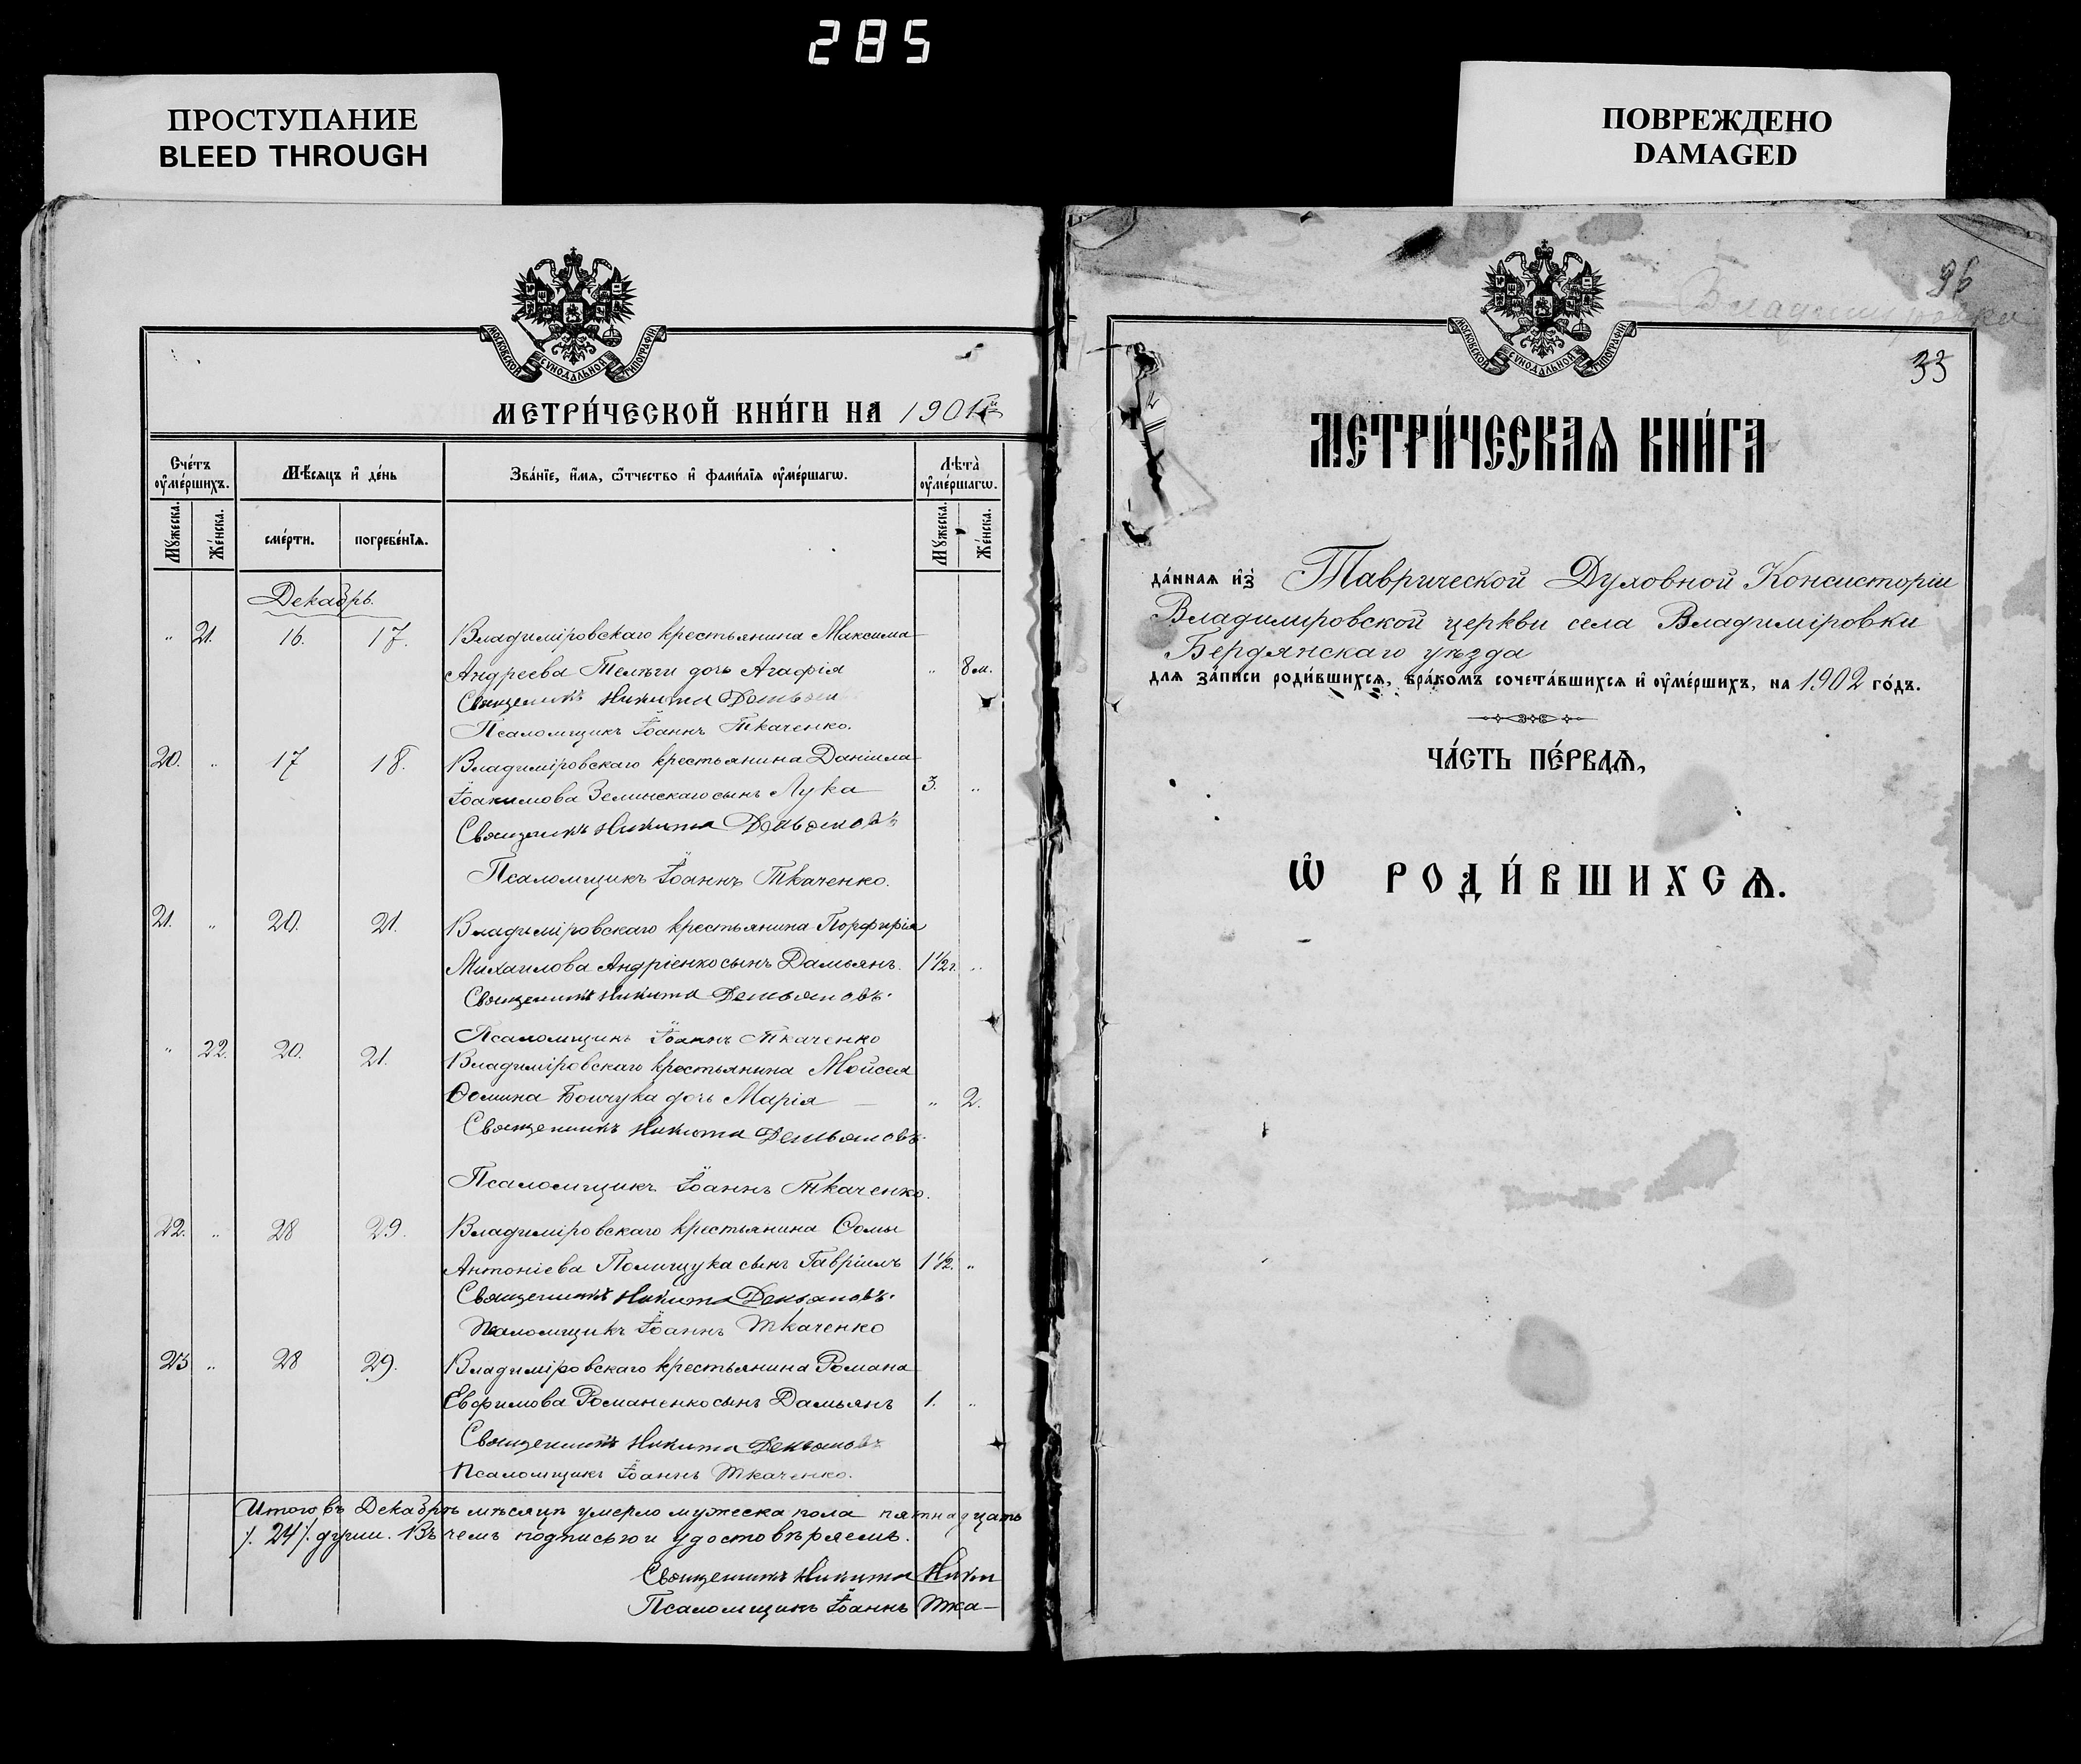 285
ПРОСТУПАНИЕ
BLEED THROUGH
ПОВРЕЖДЕНО
DAMAGED
МОСКОВСКОЙ СѴНОДАЛЬНОЙ ТИПОГРАФІИ
МЕТРИ́ЧЕСКОЙ КНИ́ГИ НА 1901й
Сче́тъ оу҆ме́ршихъ.
Мѣ́сяцъ и҆ де́нь
Зва́нїе, и҆́мя, ѻ҆́тчество и҆ фами́лїя оу҆ме́ршагѡ.
Лѣта̀ оу҆ме́ршагѡ.
Мꙋ́жеска.
Же́нска.
сме́рти.
погребе́нїя.
Мꙋ́жеска.
Же́нска.
Декабрь.
" 21. 16. 17. Владиміровскаго крестьянина Максима
Андреева Телѣги дочь Агафія " 8 м.
Священникъ Никита Демьян
Псаломщикъ Іоаннъ Ткаченко.
20. " 17 18. Владиміровскаго крестьянина Даніила
Іоакимова Зелинскаго сынъ Лука 3. "
Священникъ Никита Демьяновъ
Псаломщикъ Іоаннъ Ткаченко.
21. " 20. 21. Владиміровскаго крестьянина Порфирія
Михаилова Андріенко сынъ Дамьянъ. 1 1/2 г. "
Священникъ Никита Демьяновъ.
Псаломщикъ Іоаннъ Ткаченко
" 22. 20. 21. Владиміровскаго крестьянина Мойсея
Ѳомина дочь Марія " 2.
Священникъ Никита Демьяновъ.
Псаломщикъ Іоаннъ Ткаченко.
22. " 28 29. Владиміровскаго крестьянина Ѳомы
Антоніева Полищука сынъ Гавріилъ 1 1/2. "
Священникъ Никита Демьяновъ.
Псаломщикъ Іоаннъ Ткаченко
23 " 28 29. Владиміровскаго крестьянина Романа
Евфимова Романенко сынъ Дамьянъ 1. "
Священникъ Никита Демьяновъ
Псаломщикъ Іоаннъ Ткаченко.
Итого въ Декабрѣ мѣсяцѣ умерло мужеска пола пятнадцать
/. 24 /. души. Въ чемъ подписью и удостовѣряемъ.
Священникъ Никита Ники
Псаломщикъ Іоаннъ Тка-
96
Владимировка
33
МОСКОВСКОЙ СѴНОДАЛЬНОЙ ТИПОГРАФІИ
МЕТРИ́ЧЕСКАЯ КНИ́ГА
да́нная и҆з̾ Таврической Духовной Консисторіи
Владиміровской церкви села Владиміровки
Бердянскаго уѣзда
для за́писи роди́вшихся, бра́комъ сочета́вшихся и҆ оу҆ме́ршихъ, на 1902 го́дъ.
ЧА́СТЬ ПЕ́РВАЯ,
Ѡ҆ РОДИ́ВШИХСЯ.